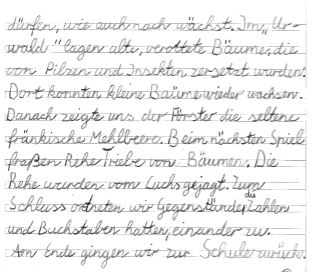 dürfen, wie auch nach wächst. Im „Ur-
wald" lagen alte, verottete Bäume, die
von Pilzen und Insekten zersetzt wurden.
Dort konnten kleine Bäume wieder wachsen.
Danach zeigte uns der Förster die seltene
fränkische Mehlbeere. Beim nächsten Spiel
fraßen Rehe Triebe von Bäumen. Die
Rehe wurden vom Luchs gejagt. Zum
Schluss ordneten wir Gegenstände, die Zahlen
und Buchstaben hatten, einander zu.
Am Ende gingen wir zur Schule zurück.